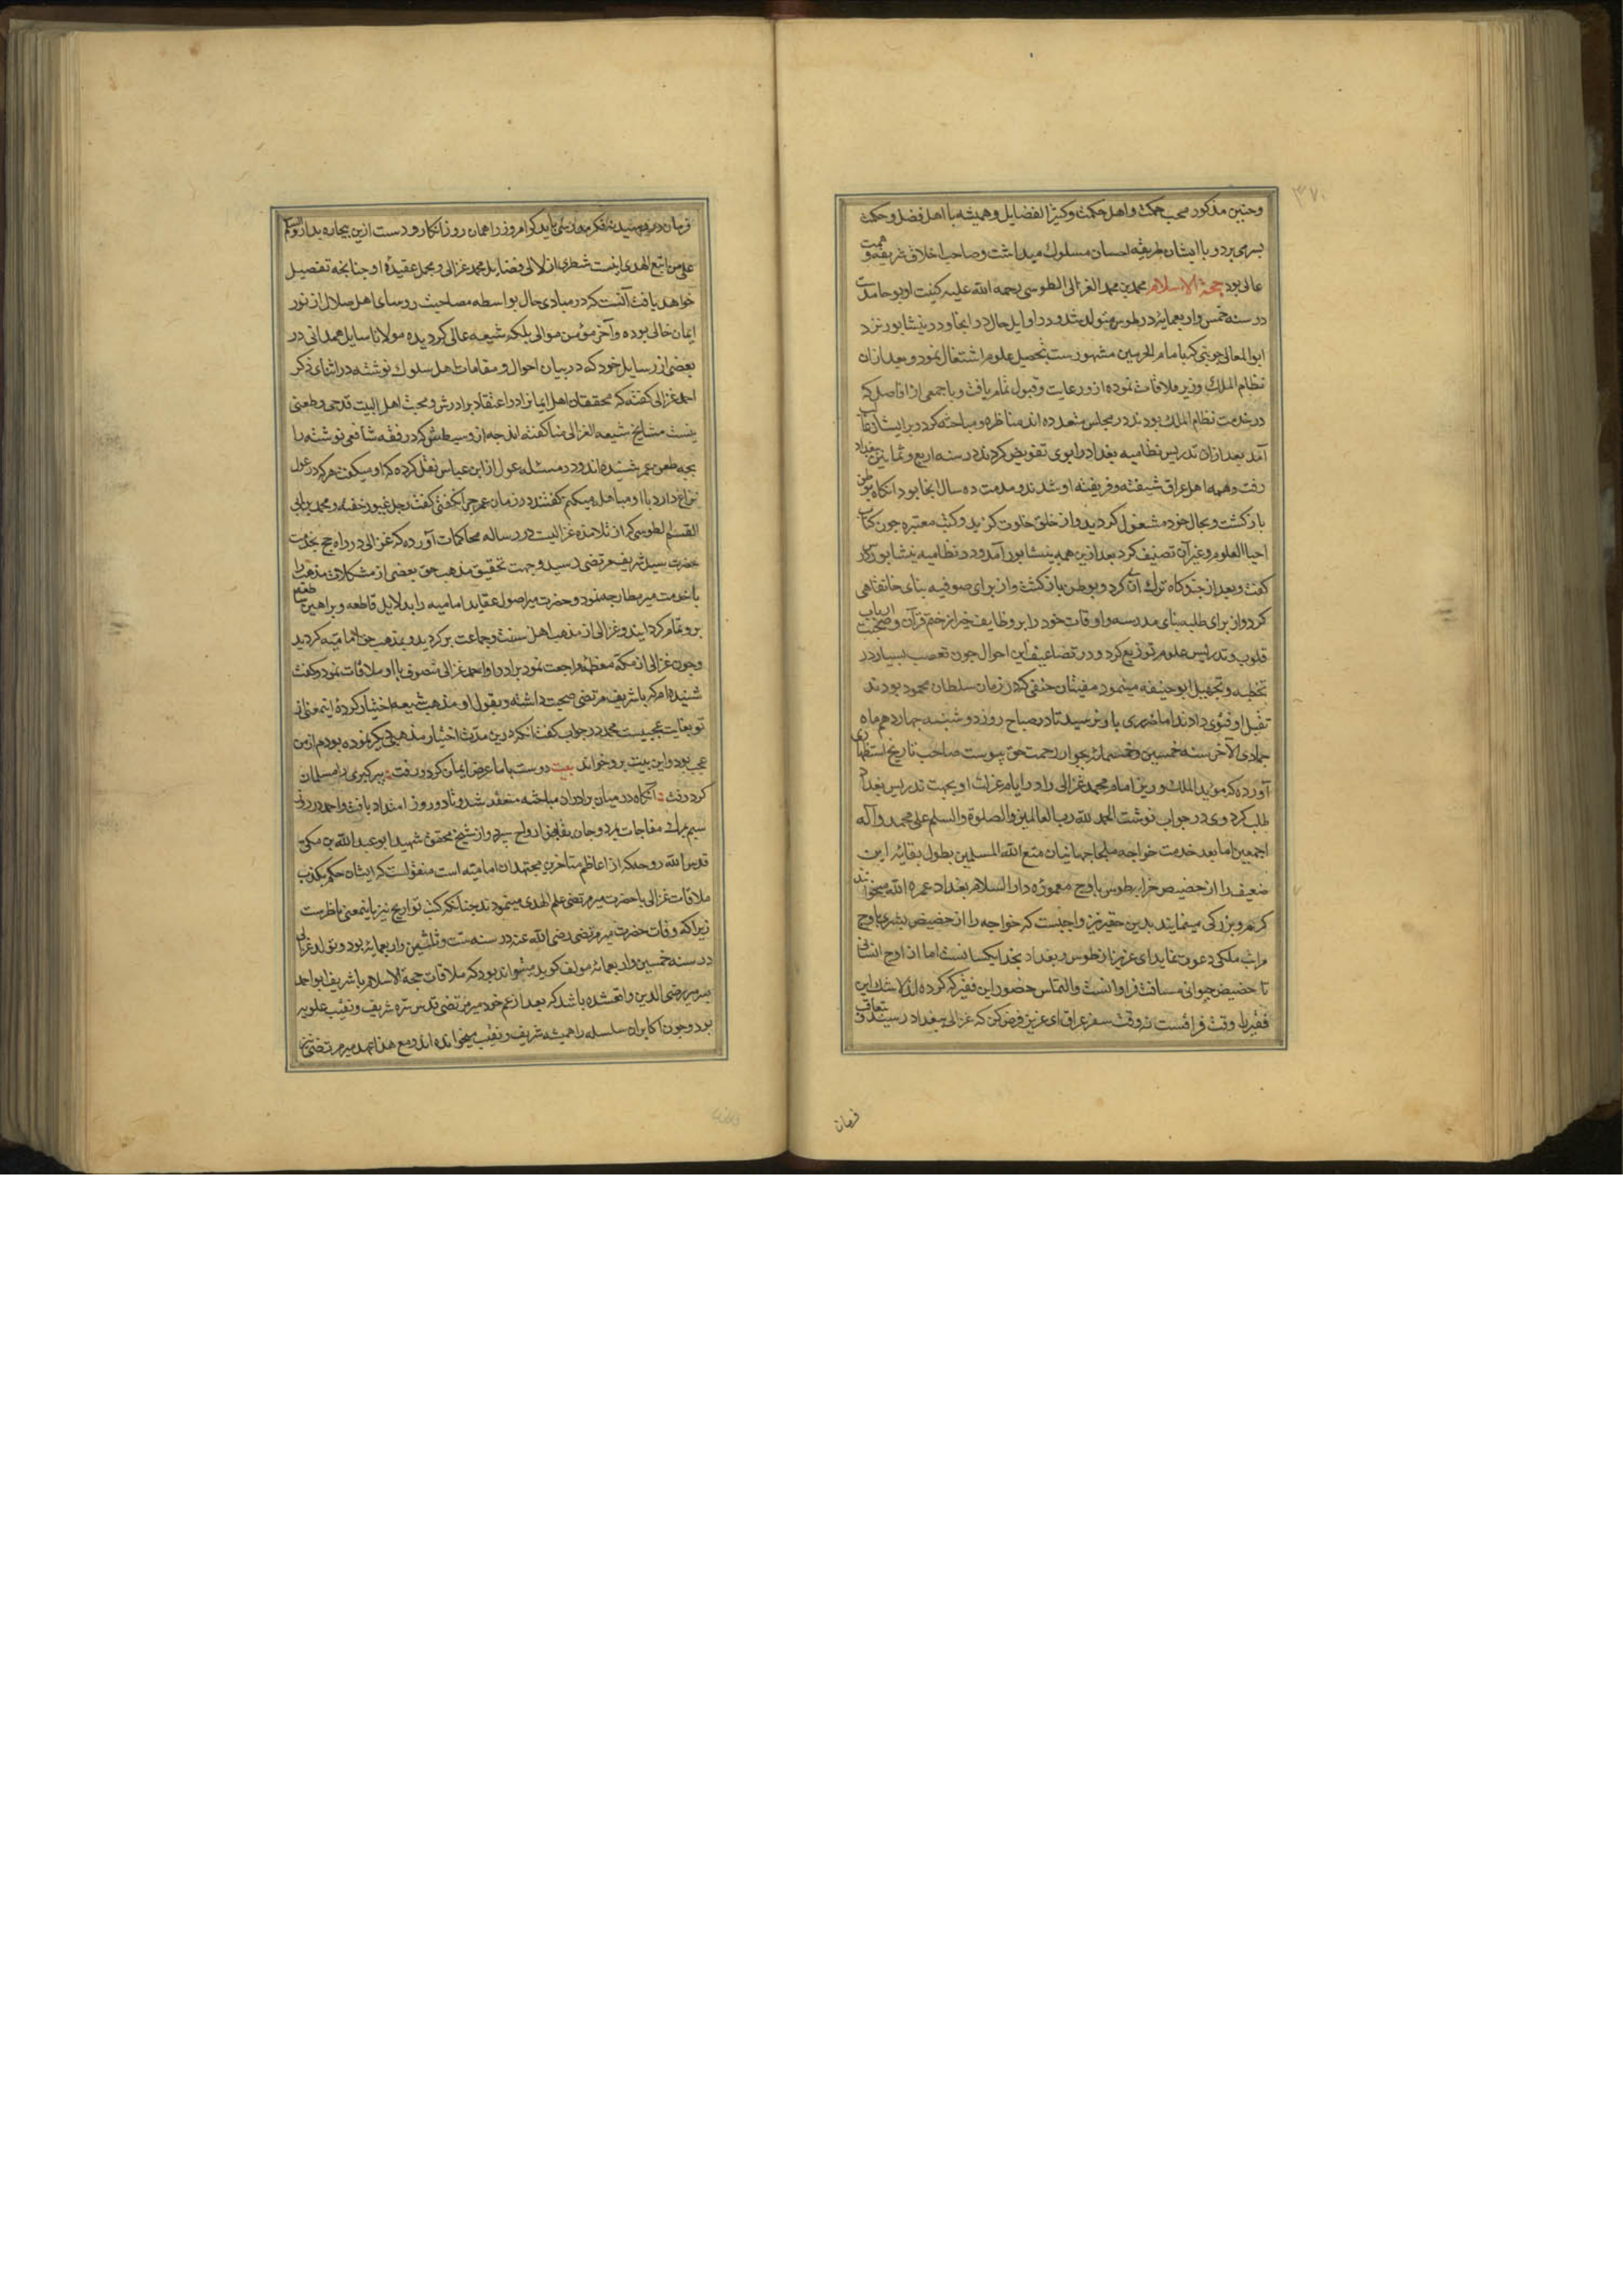 ۳۷۰
وحنین مذکور محب حکمت و اهل حکمت و کثیر الفضایل و همیشه با اهل فضل و حکمت
بسر می برد و با ایشان طریقه احسان مسلوک میداشت و صاحب اخلاق شریفه و همت
عالی بود حجة الاسلام محمد بن محمد الغزالی الطوسی رحمه الله علیه کنیت او ابو حامد است
در سنه خمس و اربعمایه در طوس متولد شد و در اوایل حال در انجا و در نیشابور نزد
ابو المعالی جوینی که بامام الحرمین مشهور ست بتحصیل علوم اشتغال نمود و بعد ازان
نظام الملک وزیر ملاقات نموده ازو رعایت و قبول تمام یافت و با جمعی از افاضل که
در خدمت نظام الملک بودند در مجلس متعدده اند مناظره و مباحثه کرد و بر ایشان غالب
آمد بعد ازان تدریس نظامیه بغداد را بوی تفویض کردند در سنه اربع و ثمانین ببغداد
رفت و همه اهل عراق شیفته و فریفته او شدند و مدت ده سال انجا بود انکاه بوطن
بازکشت و بحال خود مشغول کردید و از خلق خلوت کزید و کتب معتبره چون کتاب
احیاء العلوم و غیر آن تصنیف کرد بعد ازین همه بنیشابور آمد و در نظامیه نیشابور درس
کفت و بعد از چند کاه ترک آن کرد و بوطن بازکشت و از برای صوفیه بنای خانقاهی
کرد و از برای طلبه بنای مدرسه و اوقات خود را بر وظایف خیر از ختم قرآن و صحبت ارباب
قلوب و تدریس علوم توزیع کرد و در تضاعیف این احوال چون تعصب بسیار در
تخطیه و تجهیل ابو حنیفه مینمود مفتیان حنفی که در زمان سلطان محمود بودند
تقتل او فتوی دادند اما ضرری باو نرسید تا در صباح روز دوشنبه چهاردهم ماه
جمادی الآخر سنه خمسین و خمسمائه بجوار رحمت حق پیوست صاحب تاریخ استظهاری
آورده که موید الملک وزیر امام محمد غزالی را در ایام عزلت او بجهت تدریس بغداد
طلب کرد وی در جواب نوشت الحمد لله رب العالمین و الصلوة و السلم علی محمد و آله
اجمعین اما بعد خدمت خواجه ملجا جهانیان متع الله المسلمین بطول بقائه این
ضعیف را از حضیض خراب طوس باوج معموره دار السلام بغداد عمره الله میخوانند
کرم و بزرکی مینمایند بدین حقیر نیز واجبست که خواجه را از حضیض بشری باوج
مراتب ملکی دعوت نماید ای عزیز از طوس و بغداد بخدا یکسانست اما از اوج انسانی
تا حضیض حیوانی مسافت فراوانست و التماس حضور این فقیر که کرده اند لا شک این
فقیر را وقت فراقست نه وقت سفر عراق ای عزیز فرض کن که غزالی ببغداد رسید و متعاقب
فرمان
فرمان در رسید نه فکر مدرسی باید کرد امروز را همان روز انکار و دست ازین بیچاره بدار و السلم
علی من اتبع الهدی اینست شطری از لالی فضایل محمد غزالی و مجمل عقیده او چنانچه تفصیل
خواهد یافت آنست که در مبادی حال بواسطه مصاحبت روسای اهل ضلال از نور
ایمان خالی بوده و آخر مؤمن موالی بلکه شیعه عالی کردیده مولانا سایل همدانی در
بعضی از رسایل خود که در بیان احوال و مقامات اهل سلوک نوشته در اثنای ذکر
احمد غزالی کفته که محققان اهل ایمانرا در اعتقاد برادرش و محبت اهل البیت قدحی و طعنی
نیست مشایخ شیعه الغزالی منا کفته اند چه از وسیطش که در فقه شافعی نوشته را
بجه طعن عمر شنیده اند و در مسئله عول از ابن عباس نقل کرده که او میکفت هر که در عول
نزاع دارد با او مباهله میکنم کفتند در زمان عمر چرا نکفتی کفت رجل غیور خفته و محمد بن ابی
القسم الطوسی که از تلامذه غزالیست در رساله محاکمات آورده که غزالی در راه حج بخدمت
حضرت سید شریف مرتضی رسید و جهت تحقیق مذهب حق بعضی از مشکلات مذهب را
با خدمت میر مطارحه نمود و حضرت میر اصول عقاید امامیه را بدلایل قاطعه و براهین ساطعه
برو تمام کردانید و غزالی از مذهب اهل سنت و جماعت برکردید و بمذهب حق امامیه کردید
و چون غزالی از مکه معظمه مراجعت نمود برادر او احمد غزالی متصوف با او ملاقات نمود و کفت
شنیده ام که با شریف مرتضی صحبت داشته و بقول او مذهب شیعه اختیار کرده اینمعنی از
تو بغایت عجیبست محمد در جواب کفت انکه درین مدت اختیار مذهب دیکر نموده بودم ازمن
عجب بود و این بیت برو خواند بیت دوست باما عرض ایمان کرد و رفت پیر کبری را مسلمان
کرد و رفت آنکاه در میان برادران مباحثه منعقد شد و تا دو روز امتداد یافت و احمد در روز
سیم بمرک مفاجات بمرد و جان بقابض ارواح سپرد و از شیخ محقق شهید ابو عبد الله بن مکی
قدس الله روحه که از اعاظم متاخرین مجتهدان امامیه است منقولست که ایشان حکم بکذب
ملاقات غزالی با حضرت میر مرتضی علم الهدی مینمودند چنانکه کتب تواریخ نیز باینمعنی ناظرست
زیرا که وفات حضرت میر مرتضی رضی الله عنه در سنه ست و ثلثین و اربعمائه بود و تولد غزالی
در سنه خمسین و اربعمائه مولف کوید میتواند بود که ملاقات حجة الاسلام با شریف ابو احمد
پسر میر رضی الدین واقع شده باشد که بعد از عم خود میر مرتضی قدس سره شریف و نقیب علویه
بود و چون اکابر ان سلسله را همیشه شریف و نقیب میخوانده اند و مع هذا جد میر مرتضی نیز